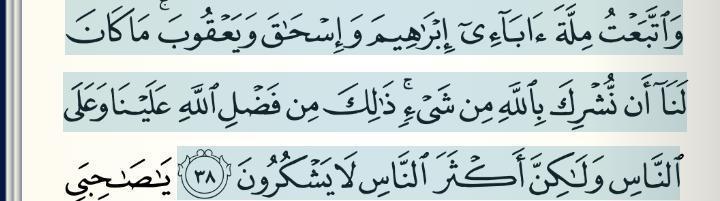 وَٱتَّبَعْتُ مِلَّةَ ءَابَآءِىٓ إِبْرَٰهِيمَ وَإِسْحَٰقَ وَيَعْقُوبَ ۚ مَا كَانَ
لَنَآ أَن نُّشْرِكَ بِٱللَّهِ مِن شَىْءٍ ۚ ذَٰلِكَ مِن فَضْلِ ٱللَّهِ عَلَيْنَا وَعَلَى
ٱلنَّاسِ وَلَٰكِنَّ أَكْثَرَ ٱلنَّاسِ لَا يَشْكُرُونَ ٣٨ يَٰصَٰحِبَىِ